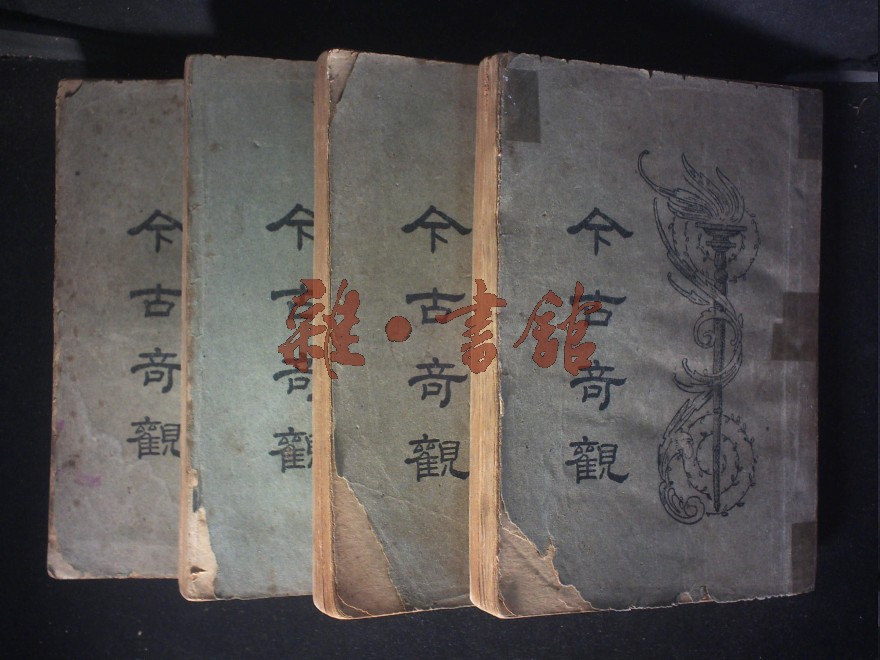 今古奇觀
今古奇觀
今古奇觀
今古奇觀
雜·書館